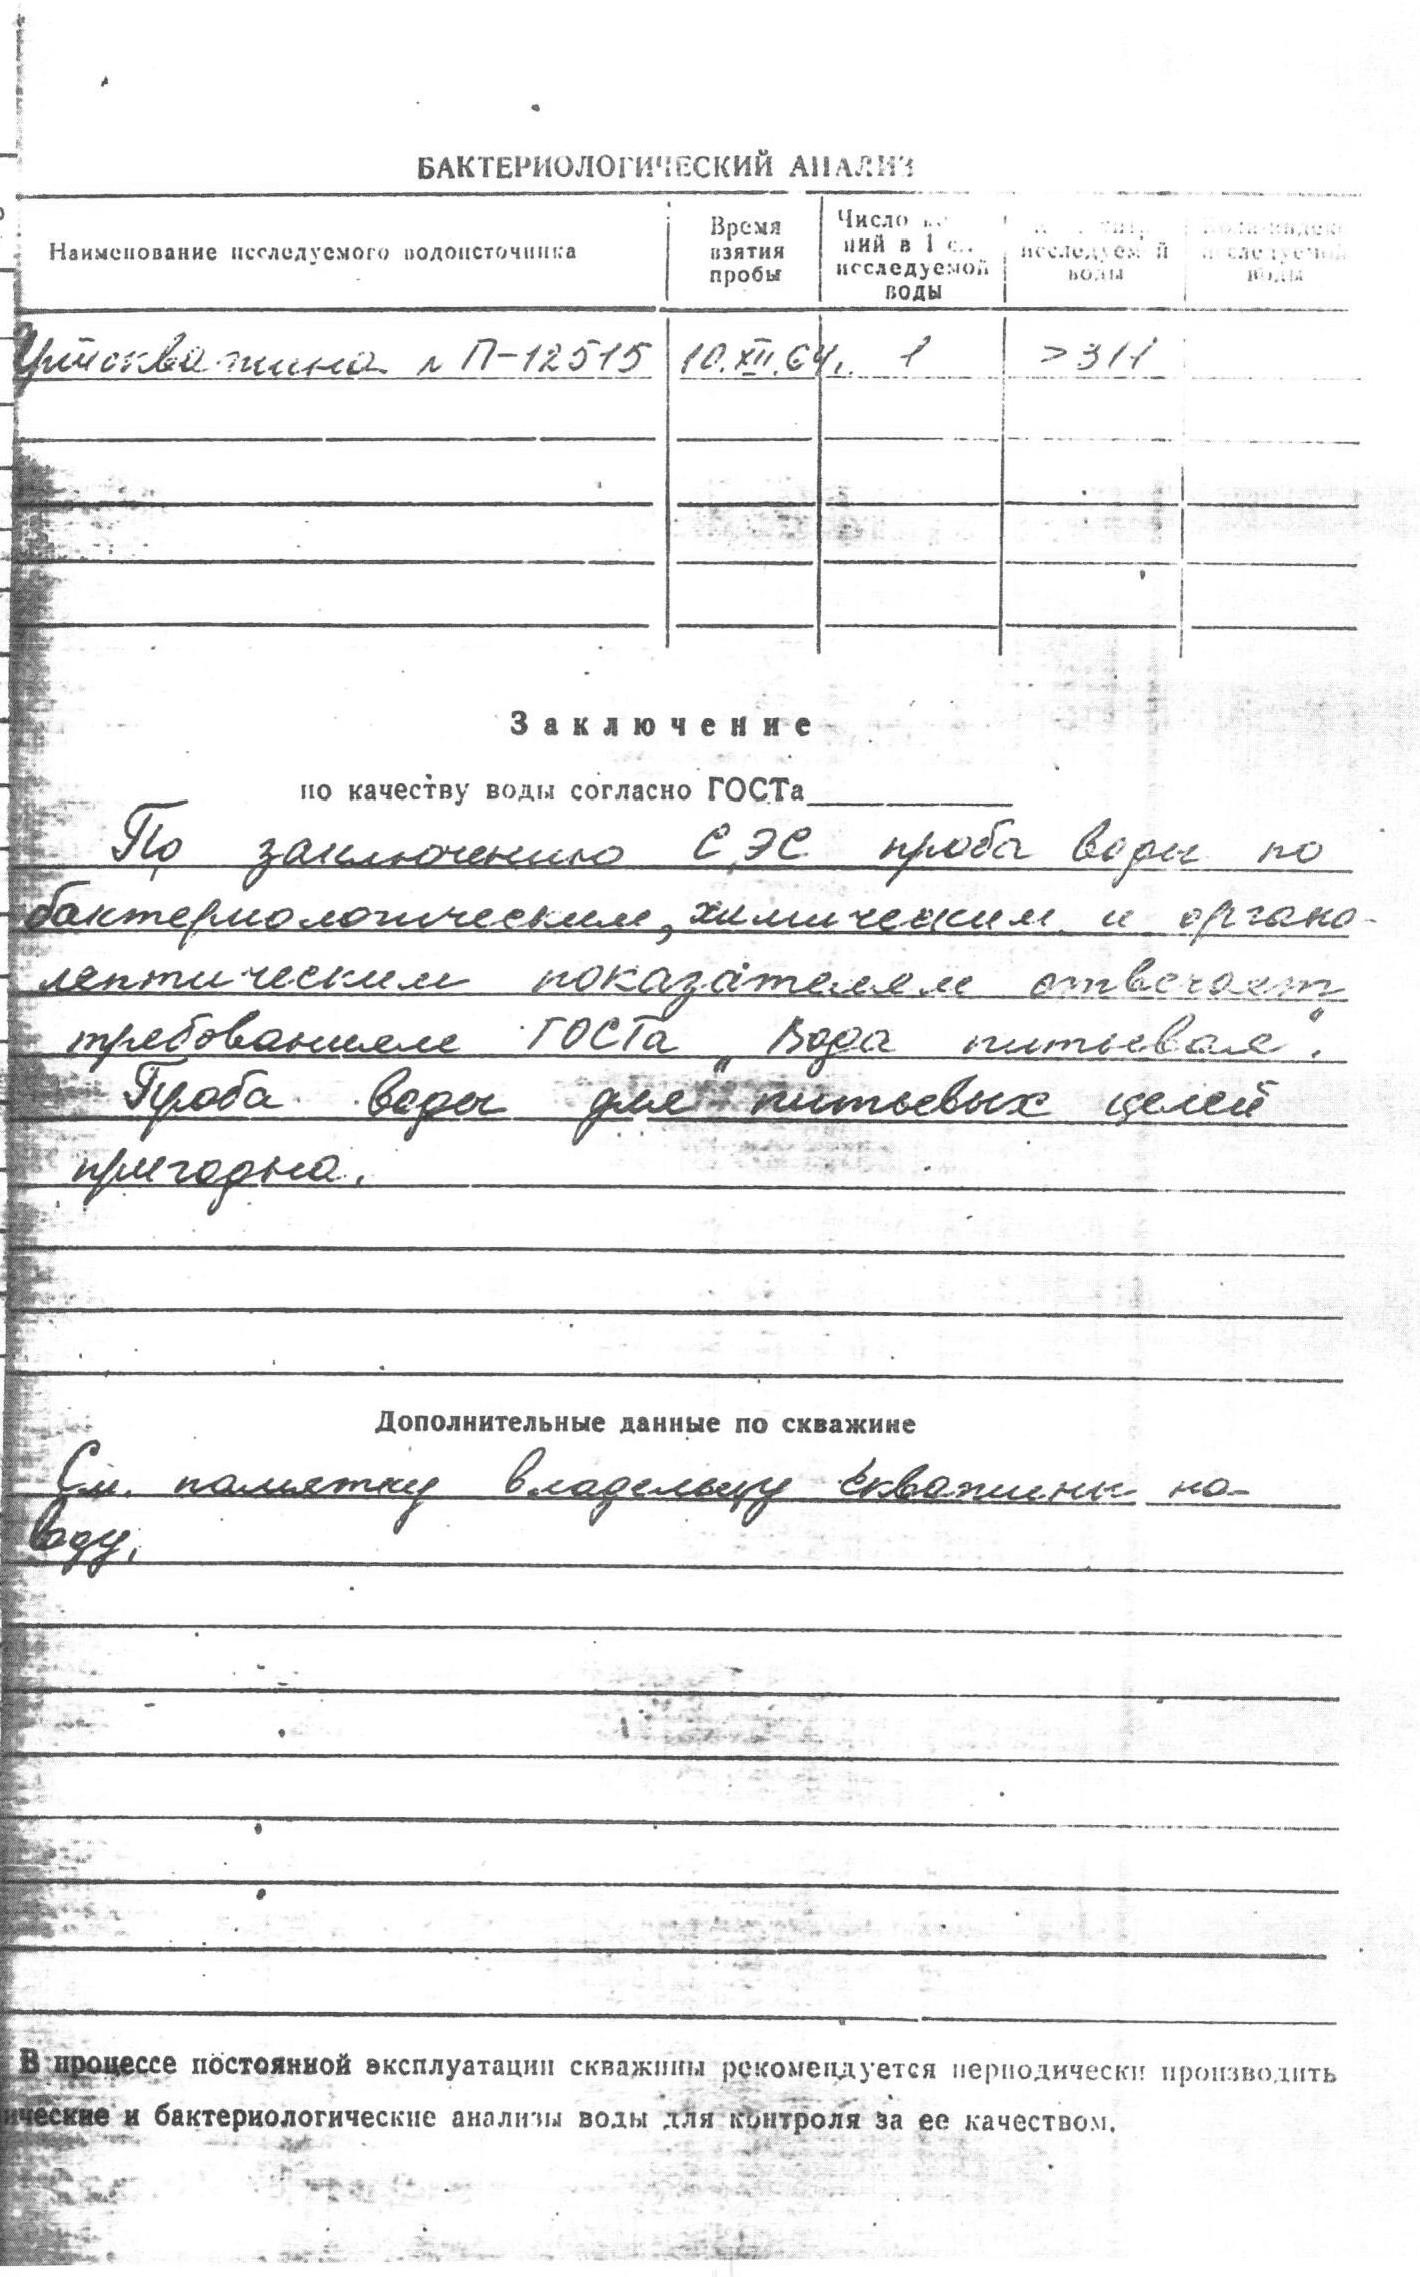 БАКТЕРИОЛОГИЧЕСКИЙ АНАЛИЗ
Наименование исследуемого водоисточника
Время взятия пробы
Число ний в 1 исследуемой воды
исследуемой воды
Коли-индекс исследуемой воды
скважина П-12515 10.XII.64. 1 >311
Заключение
по качеству воды согласно ГОСТа
По заключению СЭС проба воды по
бактериологическим, химическим и органо-
лептическим показателям отвечает
требованиям ГОСТа „Вода питьевая“.
Проба воды для питьевых целей
пригодна.
Дополнительные данные по скважине
См. памятку владельцу скважины на
воду.
В процессе постоянной эксплуатации скважины рекомендуется периодически производить
ические и бактериологические анализы воды для контроля за ее качеством.